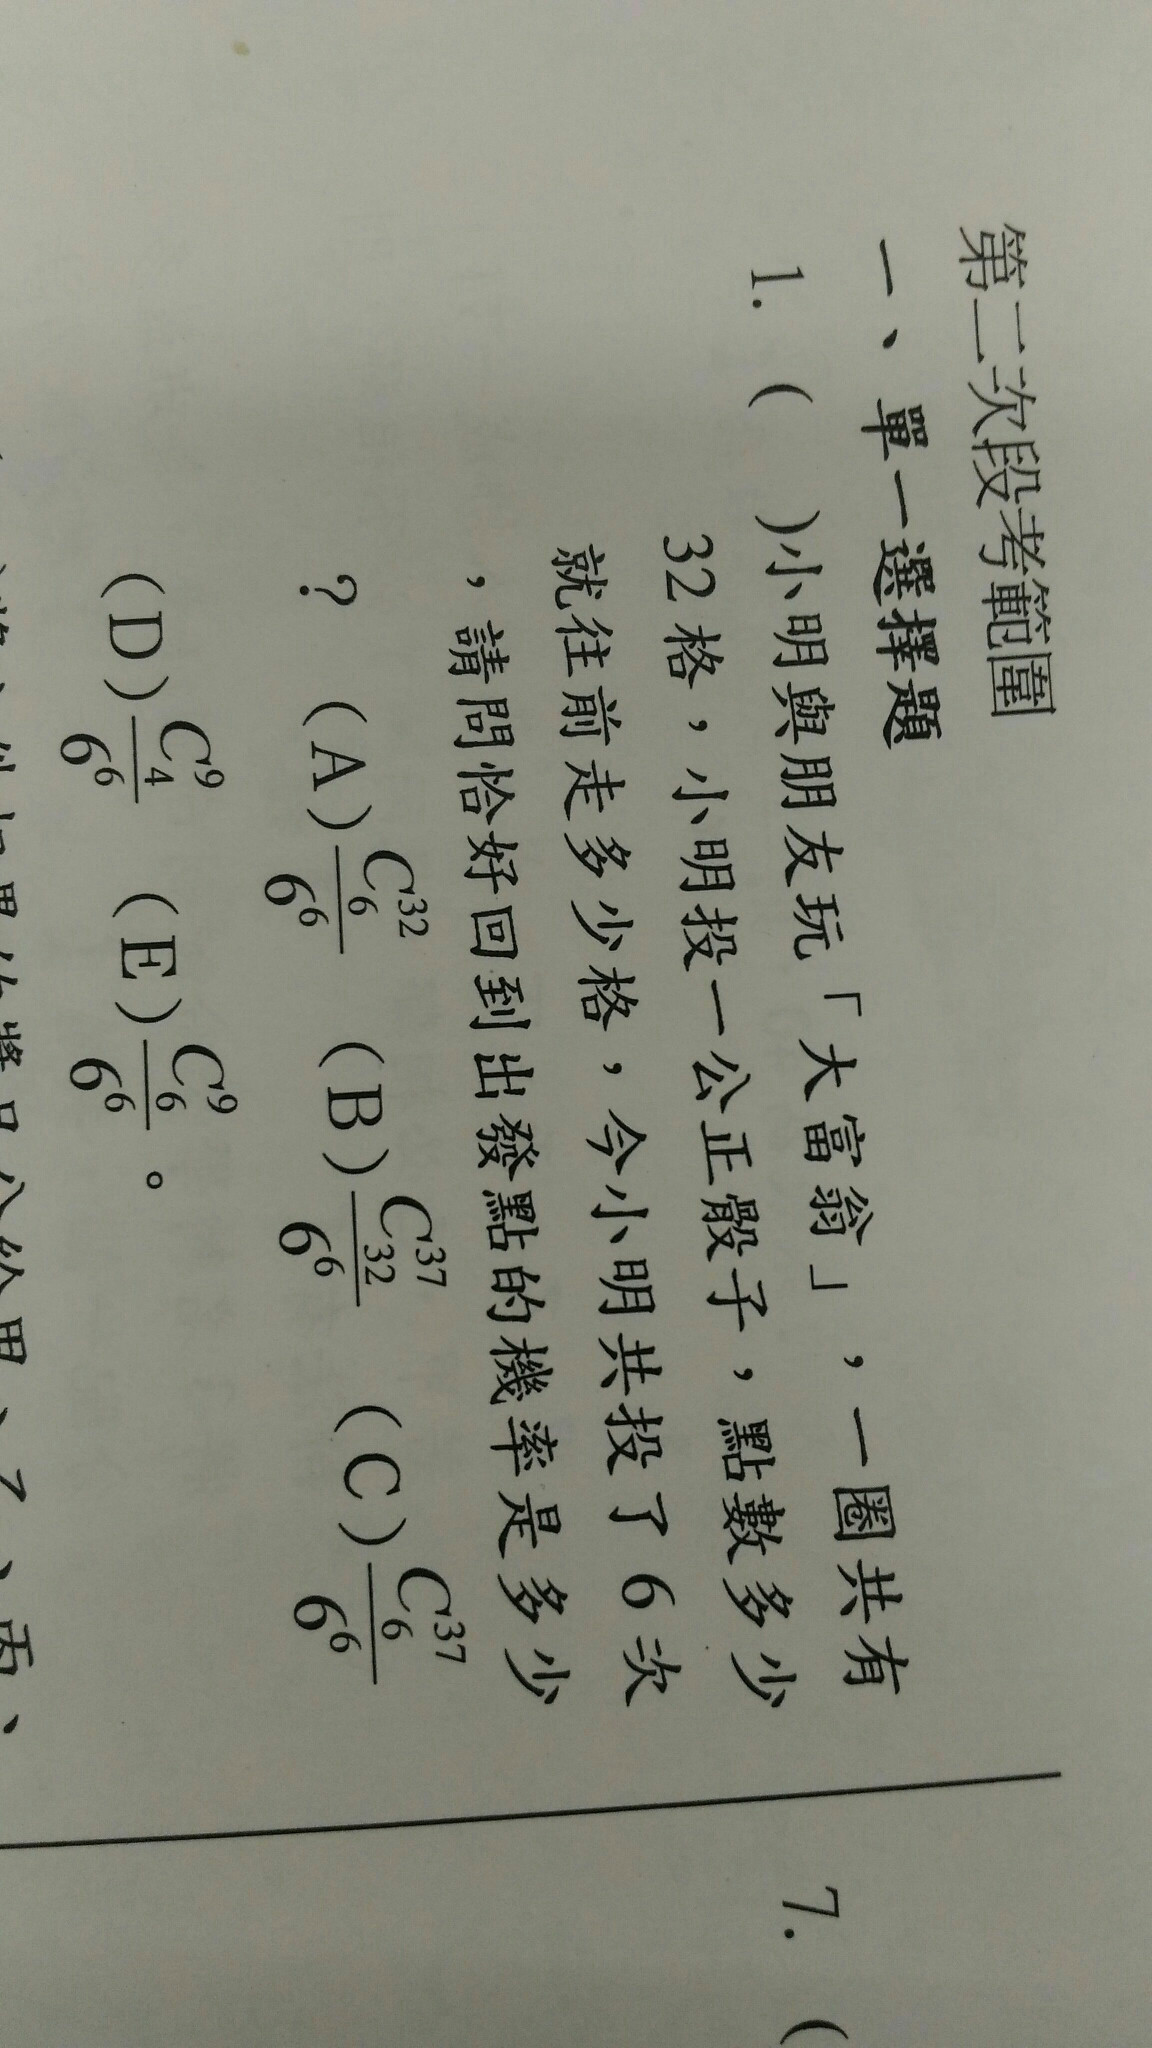 第二次段考範圍
一、單一選擇題
1. (  )小明與朋友玩「大富翁」，一圈共有
32格，小明投一公正骰子，點數多少
就往前走多少格，今小明共投了6次
，請問恰好回到出發點的機率是多少
？ (A) C^{32}_{6}/6^6 (B) C^{37}_{32}/6^6 (C) C^{37}_{6}/6^6
(D) C^{9}_{4}/6^6 (E) C^{9}_{6}/6^6 。
7. (